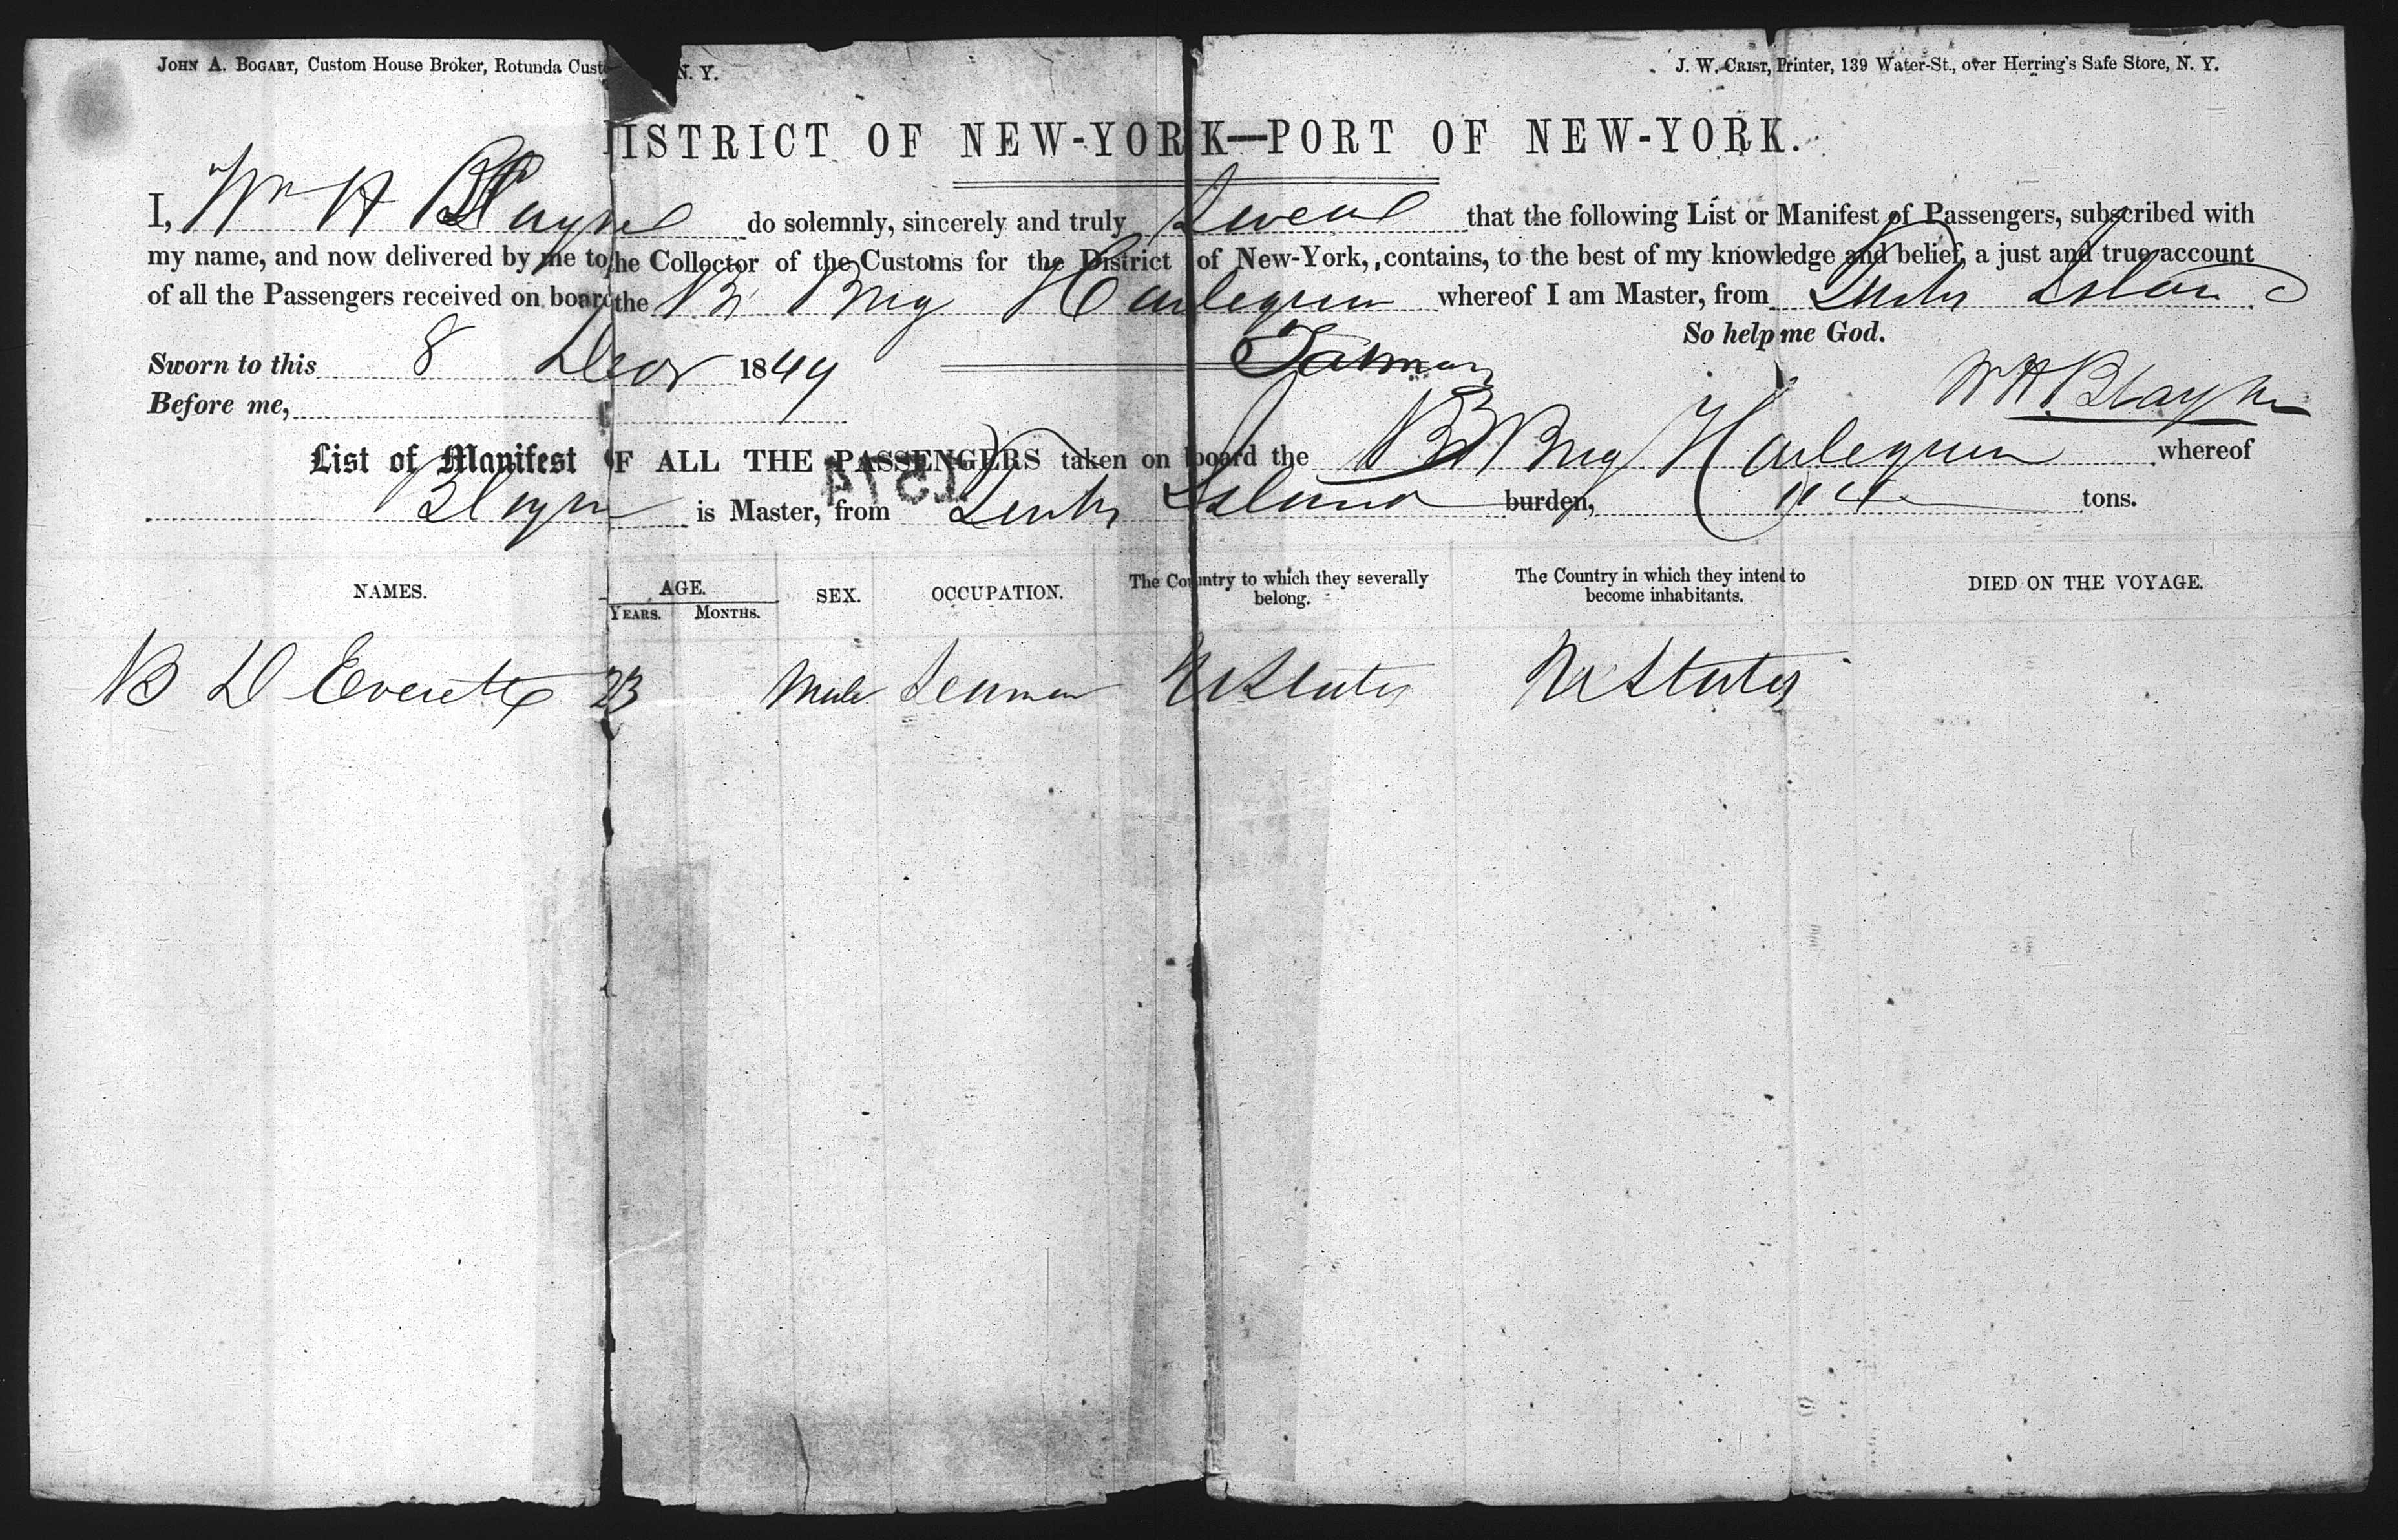 JOHN A. BOGART, Custom House Broker, Rotunda Cust N. Y.
J. W. CRIST, Printer, 139 Water-St., over Herring's Safe Store, N. Y.
DISTRICT OF NEW-YORK—PORT OF NEW-YORK.
I, Wm H Blayne do solemnly, sincerely and truly Swear that the following List or Manifest of Passengers, subscribed with
my name, and now delivered by me to the Collector of the Customs for the District of New-York, contains, to the best of my knowledge and belief, a just and true account
of all the Passengers received on board the Br Brig Harlequin whereof I am Master, from Turks Island
So help me God.
Sworn to this 8 Decr 1849
W H Blayne
Before me,
List of Manifest OF ALL THE PASSENGERS taken on board the Br Brig Harlequin whereof
Blayne is Master, from Turks Island burden, tons.
NAMES. AGE. SEX. OCCUPATION. The Country to which they severally belong. The Country in which they intend to become inhabitants. DIED ON THE VOYAGE.
YEARS. MONTHS.
D Everett 23 Male Seaman U States U States